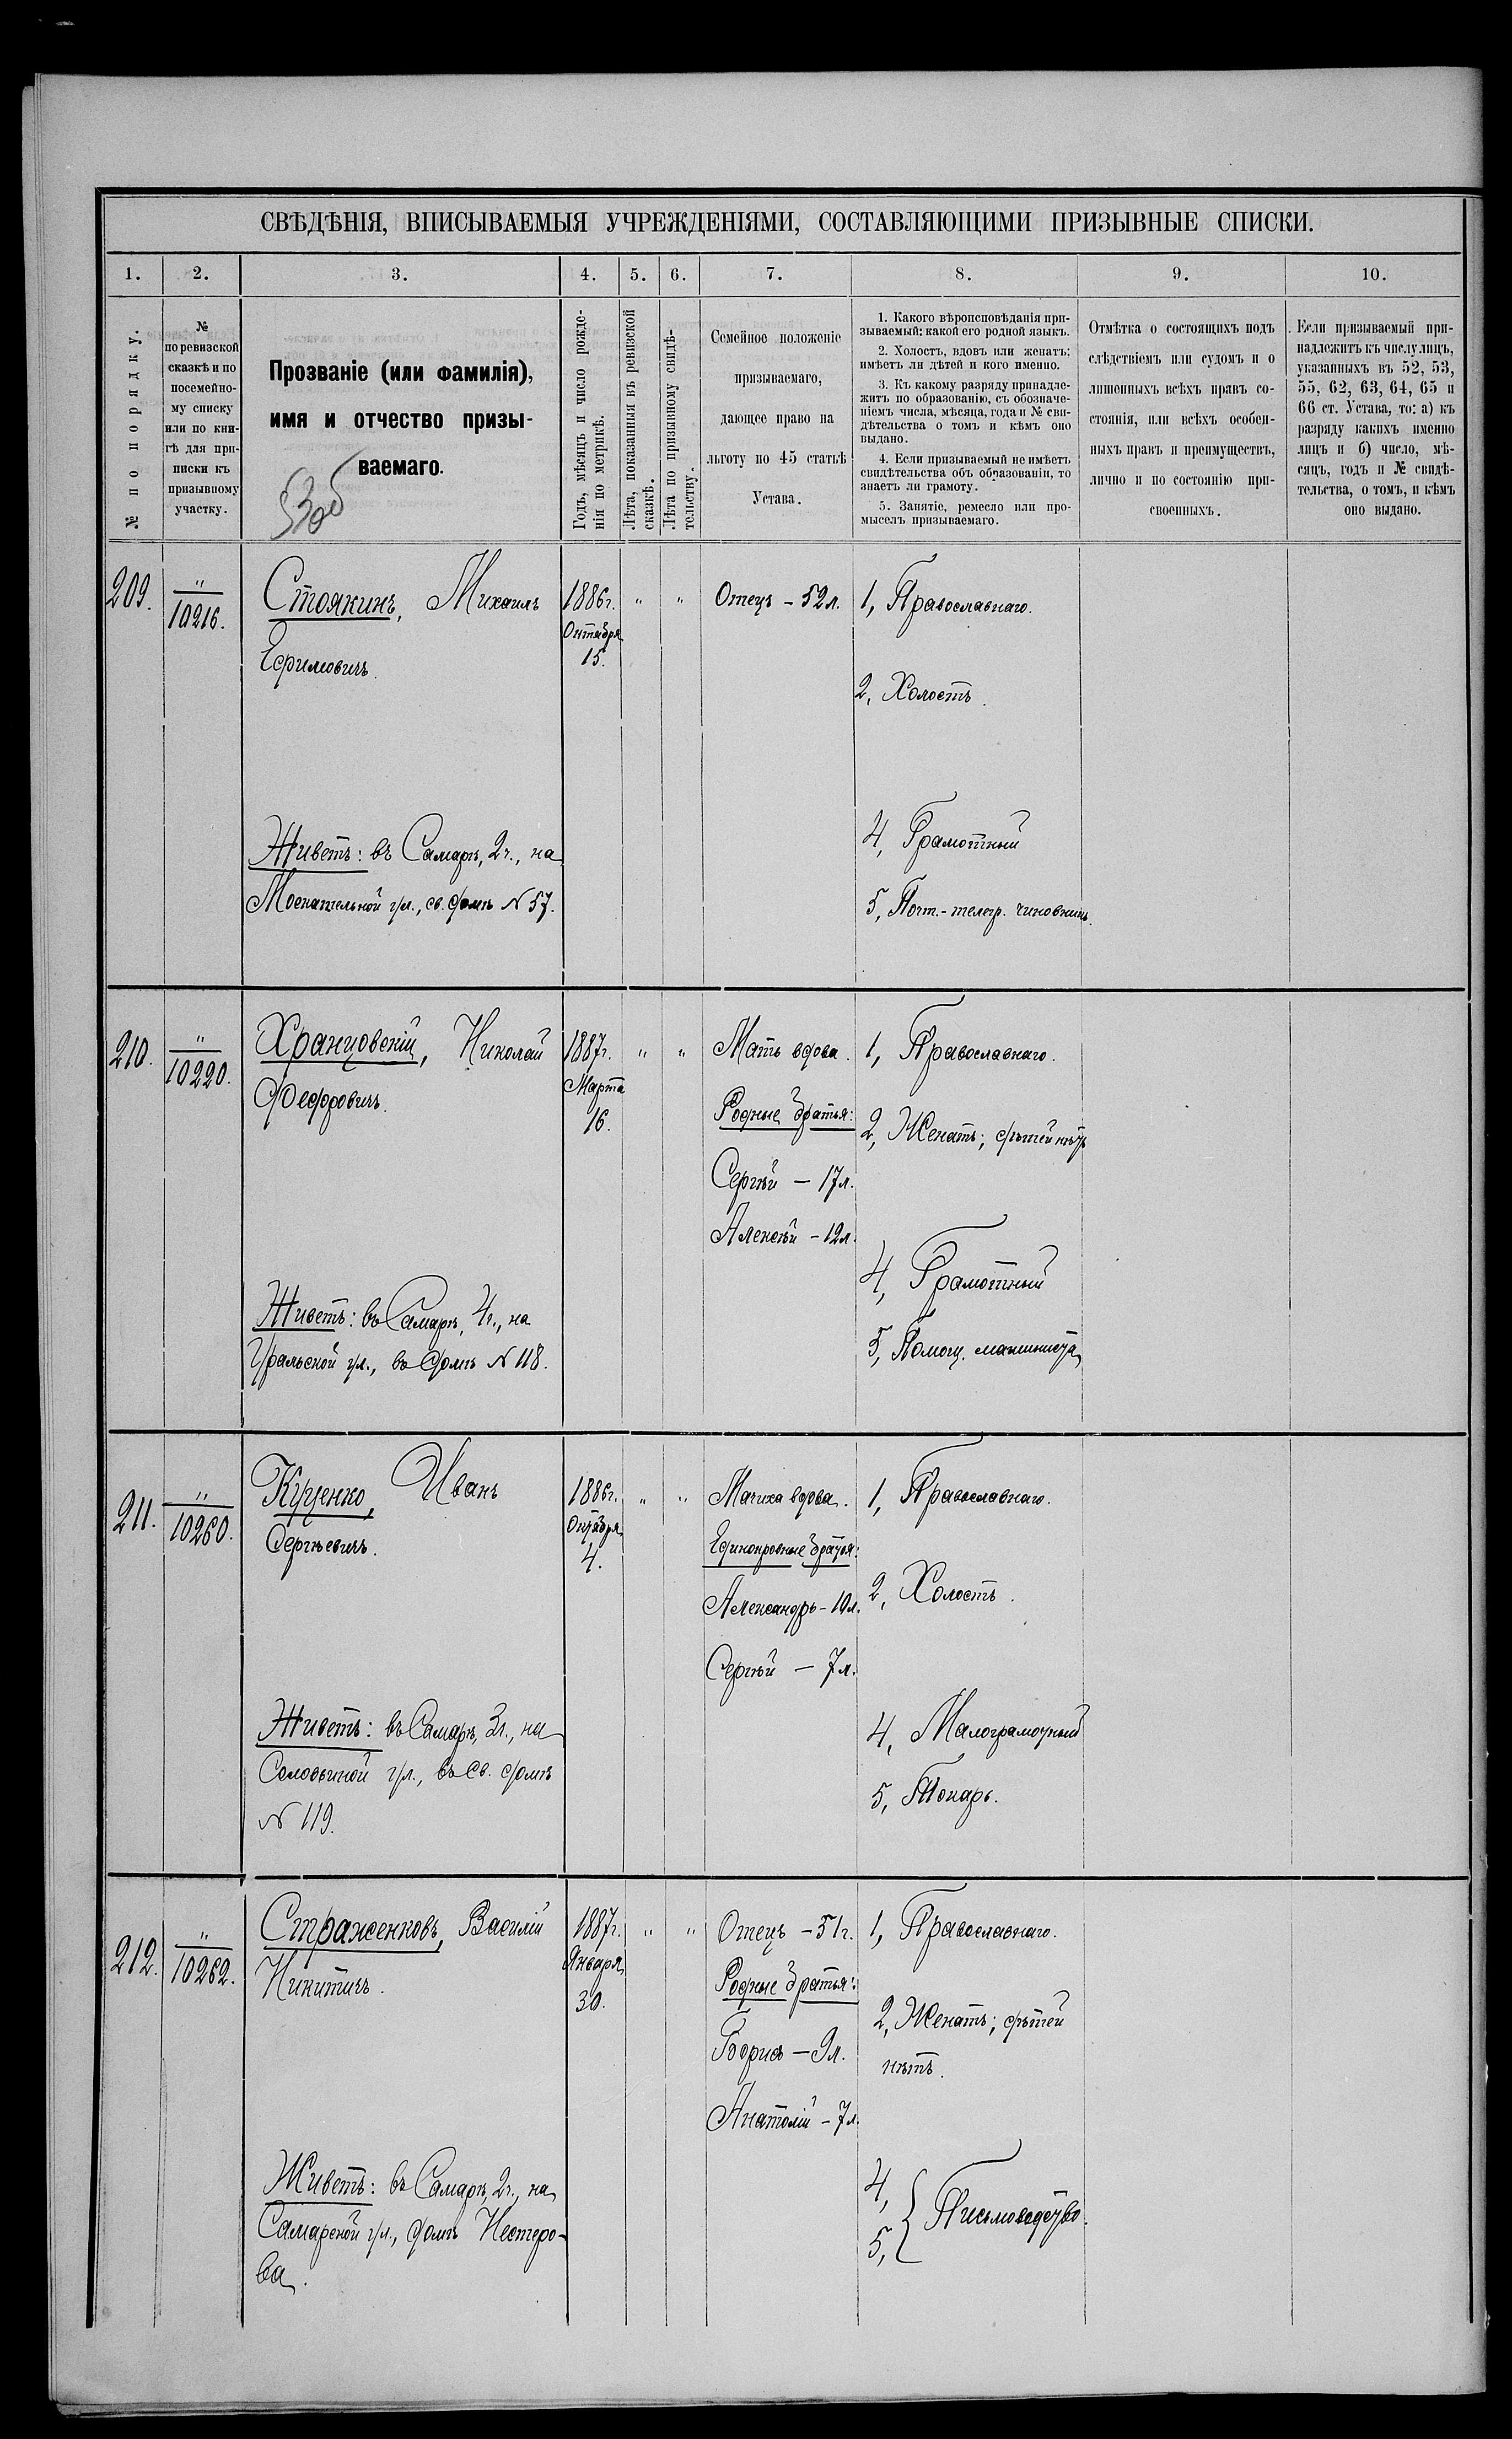 СВѢДѢНІЯ, ВПИСЫВАЕМЫЯ УЧРЕЖДЕНІЯМИ, СОСТАВЛЯЮЩИМИ ПРИЗЫВНЫЕ СПИСКИ.
1. 2. 3. 4. 5. 6. 7. 8. 9. 10.
№ по порядку.
№
по ревизской
сказкѣ и по
посемейно-
му списку
или по кни-
гѣ для при-
писки къ
призывному
участку.
Прозваніе (или фамилія),
имя и отчество призы-
ваемаго.
Годъ, мѣсяцъ и число рожде-
нія по метрикѣ.
Лѣта, показанныя въ ревизской
сказкѣ.
Лѣта по призывному свидѣ-
тельству.
Семейное положеніе
призываемаго,
дающее право на
льготу по 45 статьѣ
Устава.
1. Какого вѣроисповѣданія при-
зываемый: какой его родной языкъ.
2. Холостъ, вдовъ или женатъ;
имѣетъ ли дѣтей и кого именно.
3. Къ какому разряду принадле-
житъ по образованію, съ обозначе-
ніемъ числа, мѣсяца, года и № сви-
дѣтельства о томъ и кѣмъ оно
выдано.
4. Если призываемый не имѣетъ
свидѣтельства объ образованіи, то
знаетъ ли грамоту.
5. Занятіе, ремесло или про-
мыселъ призываемаго.
Отмѣтка о состоящихъ подъ
слѣдствіемъ или судомъ и о
лишенныхъ всѣхъ правъ со-
стоянія, или всѣхъ особен-
ныхъ правъ и преимуществъ,
лично и по состоянію при-
своенныхъ.
Если призываемый при-
надлежитъ къ числу лицъ,
указанныхъ въ 52, 53,
55, 62, 63, 64, 65 и
66 ст. Устава, то: а) къ
разряду какихъ именно
лицъ и б) число, мѣ-
сяцъ, годъ и № свидѣ-
тельства, о томъ, и кѣмъ
оно выдано.
209.
"
10216.
Стоякинъ, Михаилъ
Ефимовичъ.
Живетъ: въ Самарѣ, 2ч., на
Москательной ул., св. домъ №57.
1886г.
Октября
15.
" "
Отецъ – 52л.
1, Православнаго.
2, Холостъ.
4, Грамотный
5, Почт.-телегр. чиновникъ.
210.
"
10220.
Хранцовскій, Николай
Федоровичъ.
Живетъ: въ Самарѣ, 4ч., на
Уральской ул., въ домѣ №118.
1887г.
Марта
16.
" "
Мать вдова.
Родные братья:
Сергѣй – 17л.
Алексѣй – 12л.
1, Православнаго.
2, Женатъ; дѣтей нѣтъ
4, Грамотный
5, Помощ. машиниста
211.
"
10260.
Куценко, Иванъ
Сергѣевичъ.
Живетъ: въ Самарѣ, 3ч., на
Соловьиной ул., въ св. домѣ
№119.
1886г.
Октября
4.
" "
Мачиха вдова.
Единокровные братья:
Александръ – 10л.
Сергѣй – 7л.
1, Православнаго.
2, Холостъ.
4, Малограмотный
5, Токарь.
212.
"
10262.
Страженковъ, Василій
Никитичъ.
Живетъ: въ Самарѣ, 2ч., на
Самарской ул., домъ Нестеро-
ва.
1887г.
Января
30.
" "
Отецъ – 51г.
Родные братья:
Борисъ – 9л.
Анатолій – 7л.
1, Православнаго.
2, Женатъ; дѣтей
нѣтъ.
4,
5, Письмоводство.